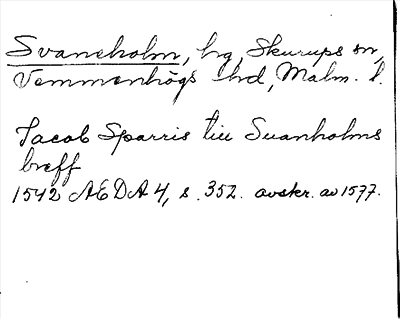 Svaneholm, hg, Skurups sn,
Vemmenhögs hd, Malm. l.
Jacob Sparris till Suanholms
breff
1542 AEDA 4, s. 352. avskr. av 1577.